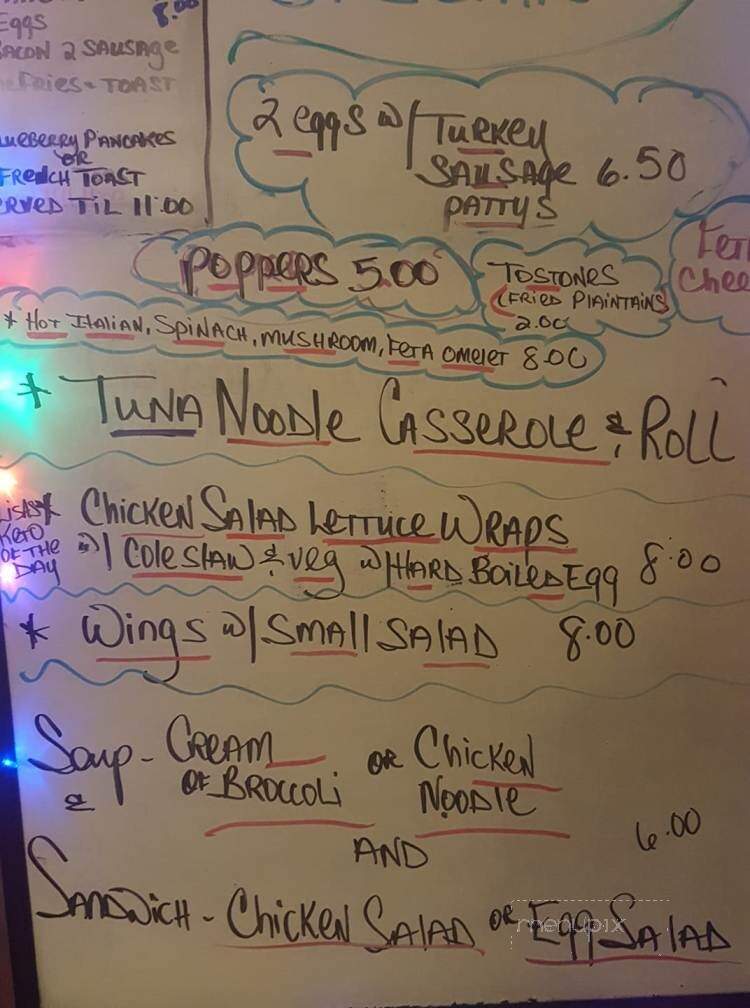 Eggs 8.00
2 SAUSAGE
TOAST
PANCAKES
OR
FRENCH TOAST
TIL 11:00
2 eggs w/ TURKEY
SAUSAGE 6.50
PATTYS
POPPERS 5.00
TOSTONES
(FRIED PlAINTAINS)
2.00
* HOT ITALIAN, SPINACH, MUSHROOM, FETA OMELET 8.00
* TUNA NOODLE CASSEROLE & ROLL
LISAS
KETO
OF THE
DAY
* CHICKEN SALAD LETTUCE WRAPS
w/ COLESLAW & veg w/ HARD BOILED EGG 8.00
* Wings w/ SMALL SALAD 8.00
Soup - CREAM OR CHICKEN
& OF BROCCOLI NOODLE
AND 6.00
SANDWICH - CHICKEN SALAD OR Egg SALAD
menupix